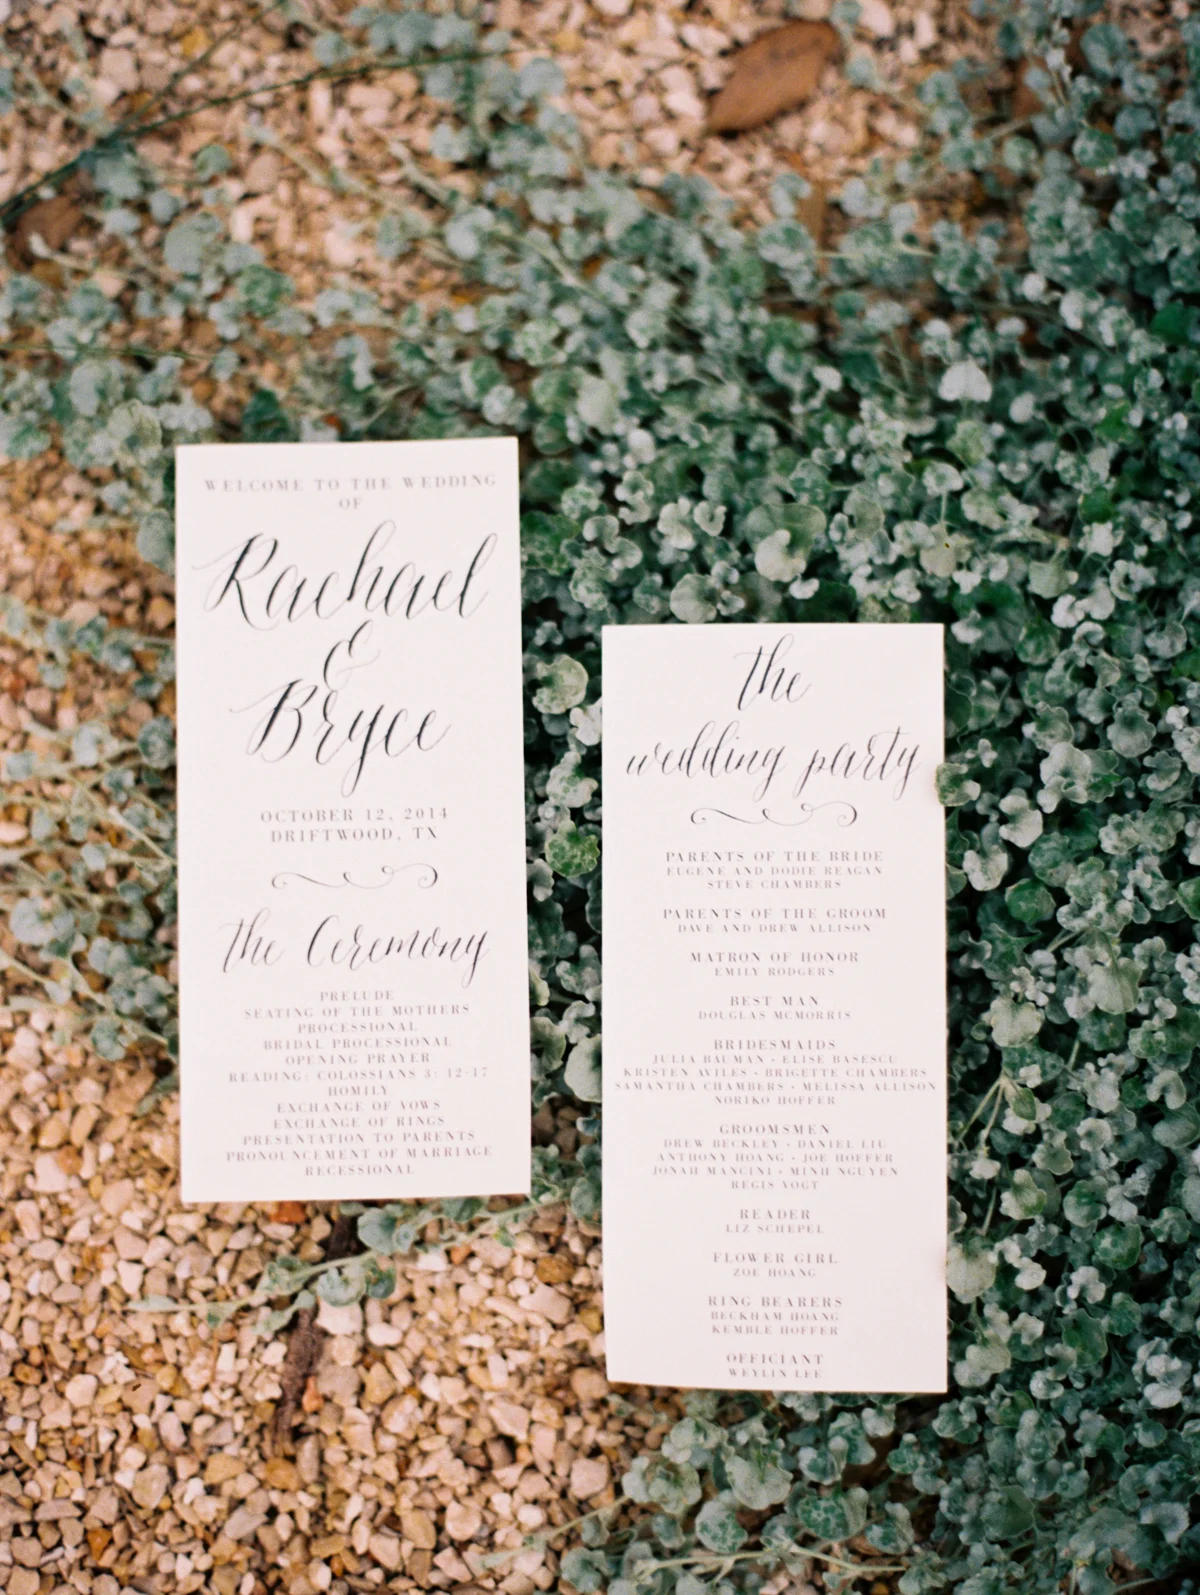 WELCOME TO THE WEDDING
OF
Rachael
&
Bryce
OCTOBER 12, 2014
DRIFTWOOD, TX
the Ceremony
PRELUDE
SEATING OF THE MOTHERS
PROCESSIONAL
BRIDAL PROCESSIONAL
OPENING PRAYER
READING: COLOSSIANS 3: 12-17
HOMILY
EXCHANGE OF VOWS
EXCHANGE OF RINGS
PRESENTATION TO PARENTS
PRONOUNCEMENT OF MARRIAGE
RECESSIONAL
the
wedding party
PARENTS OF THE BRIDE
EUGENE AND DODIE REAGAN
STEVE CHAMBERS
PARENTS OF THE GROOM
DAVE AND DREW ALLISON
MATRON OF HONOR
EMILY RODGERS
BEST MAN
DOUGLAS MCMORRIS
BRIDESMAIDS
JULIA BAUMAN • ELISE BASESCU
KRISTEN AVILES • BRIGETTE CHAMBERS
SAMANTHA CHAMBERS • MELISSA ALLISON
NORIKO HOFFER
GROOMSMEN
DREW BECKLEY • DANIEL LIU
ANTHONY HOANG • JOE HOFFER
JONAH MANCINI • MINH NGUYEN
REGIS VOGT
READER
LIZ SCHEPEL
FLOWER GIRL
ZOE HOANG
RING BEARERS
BECKHAM HOANG
KEMBLE HOFFER
OFFICIANT
WEYLIN LEE